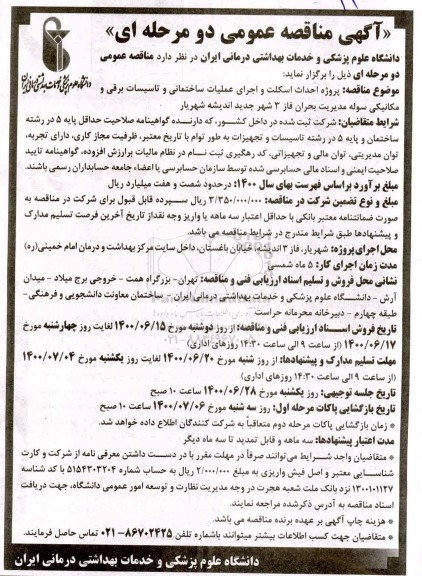 «آگهی مناقصه عمومی دو مرحله ای»
دانشگاه علوم پزشکی و خدمات بهداشتی درمانی ایران در نظر دارد مناقصه عمومی
دو مرحله ای ذیل را برگزار نماید:
موضوع مناقصه: پروژه احداث اسکلت و اجرای عملیات ساختمانی و تاسیسات برقی و
مکانیکی سوله مدیریت بحران فاز ۳ شهر جدید اندیشه شهریار
شرایط متقاضیان: شرکت ثبت شده در داخل کشور، که دارنده گواهینامه صلاحیت حداقل پایه ۵ در رشته
ساختمان و پایه ۵ در رشته تاسیسات و تجهیزات به طور توام با تاریخ معتبر، ظرفیت مجاز کاری، دارای تجربه،
توان مدیریتی، توان مالی و تجهیزاتی، کد رهگیری ثبت نام در نظام مالیات بر ارزش افزوده، گواهینامه تایید
صلاحیت ایمنی و اسناد مالی حسابرسی شده توسط سازمان حسابرسی یا اعضاء جامعه حسابداران رسمی باشند.
مبلغ برآورد براساس فهرست بهای سال ۱۴۰۰: درحدود شصت و هفت میلیارد ریال
مبلغ و نوع تضمین شرکت در مناقصه: ۳/۳۵۰/۰۰۰/۰۰۰ ریال سپرده قابل قبول برای شرکت در مناقصه به
صورت ضمانتنامه معتبر بانکی با حداقل اعتبار سه ماهه یا واریز وجه نقد از تاریخ آخرین فرصت تسلیم مدارک
و پیشنهادها طبق شرایط مندرج در شرایط مناقصه می باشد.
محل اجرای پروژه: شهریار، فاز ۳ اندیشه، خیابان باغستان، داخل سایت مرکز بهداشت و درمان امام خمینی(ره)
مدت زمان اجرای کار: ۵ ماه شمسی
نشانی محل فروش و تسلیم اسناد ارزیابی فنی و مناقصه: تهران- بزرگراه همت - خروجی برج میلاد - میدان
آرش - دانشگاه علوم پزشکی و خدمات بهداشتی درمانی ایران - ساختمان معاونت دانشجویی و فرهنگی-
طبقه چهارم - دبیرخانه محرمانه حراست
تاریخ فروش اسناد ارزیابی فنی و مناقصه: از روز دوشنبه مورخ ۱۴۰۰/۰۶/۱۵ لغایت روز چهارشنبه مورخ
۱۴۰۰/۰۶/۱۷ (از ساعت ۹ الی ساعت ۱۴:۳۰ روزهای اداری)
مهلت تسلیم مدارک و پیشنهادها: از روز شنبه مورخ ۱۴۰۰/۰۶/۲۰ لغایت روز یکشنبه مورخ ۱۴۰۰/۰۷/۰۴
(از ساعت ۹ الی ساعت ۱۴:۳۰ روزهای اداری)
تاریخ جلسه توجیهی: روز یکشنبه مورخ ۱۴۰۰/۰۶/۲۸ ساعت ۱۰ صبح
تاریخ بازگشایی پاکات مرحله اول: روز سه شنبه مورخ ۱۴۰۰/۰۷/۰۶ ساعت ۱۰ صبح
* زمان بازگشایی پاکات مرحله دوم متعاقباً به شرکت کنندگان اطلاع داده خواهد شد.
مدت اعتبار پیشنهادها: سه ماهه و قابل تمدید تا سه ماه دیگر
* متقاضیان واجد شرایط می توانند صرفاً در مهلت مقرر با در دست داشتن معرفی نامه از شرکت و کارت
شناسایی معتبر و اصل فیش واریزی به مبلغ ۲/۰۰۰/۰۰۰ ریال به حساب شماره ۵۱۵۴۳۰۳۲۰۴ با کد شناسه
۱۳۰۰۱۰۱۱۲۷ نزد بانک ملت شعبه هجرت در وجه مدیریت نظارت و توسعه امور عمومی دانشگاه، جهت دریافت
اسناد مناقصه به آدرس ذکرشده مراجعه نمایند.
* هزینه چاپ آگهی بر عهده برنده مناقصه می باشد.
* متقاضیان جهت کسب اطلاعات بیشتر میتوانند باشماره تلفن ۸۶۷۰۲۴۲۵-۰۲۱ تماس حاصل فرمایند.
دانشگاه علوم پزشکی و خدمات بهداشتی درمانی ایران